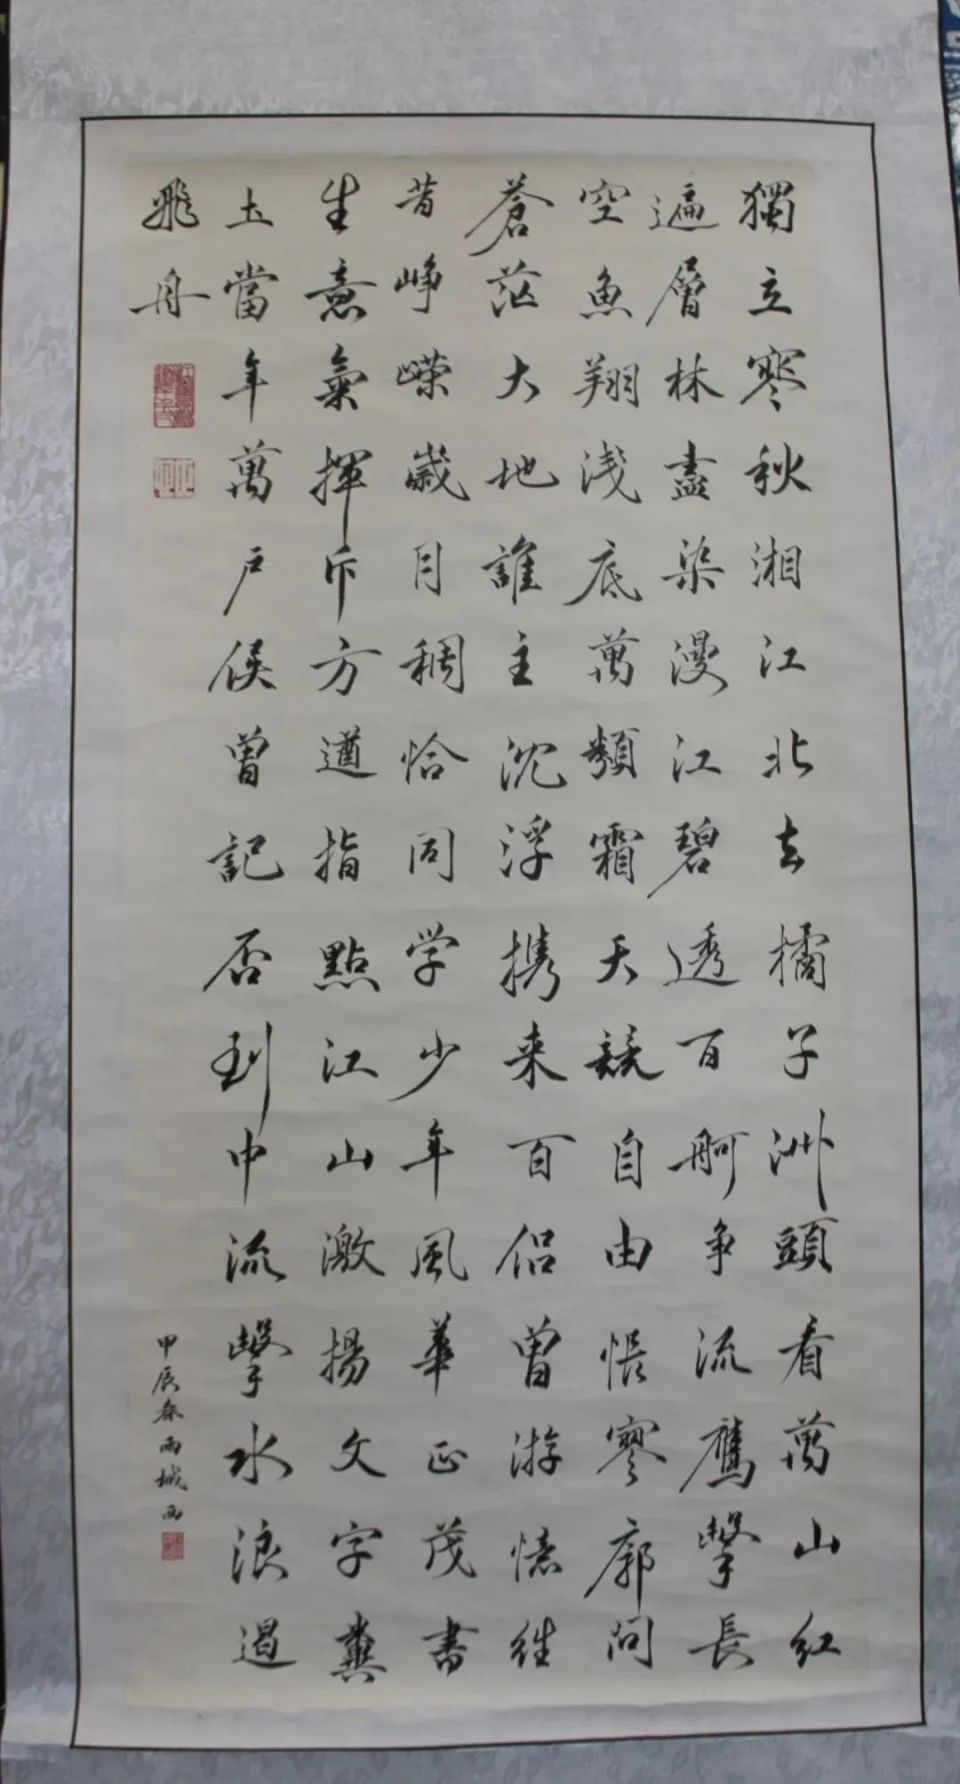 獨立寒秋湘江北去橘子洲頭看萬山紅
遍層林盡染漫江碧透百舸争流鷹擊長
空魚翔淺底萬類霜天競自由悵寥廓問
蒼茫大地誰主沈浮携来百侣曾游憶往
昔崢嶸歲月稠恰同学少年風華正茂書
生意氣揮斥方遒指點江山激揚文字糞
土當年萬户侯曾記否到中流擊水浪遏
飛舟
甲辰春雨城西